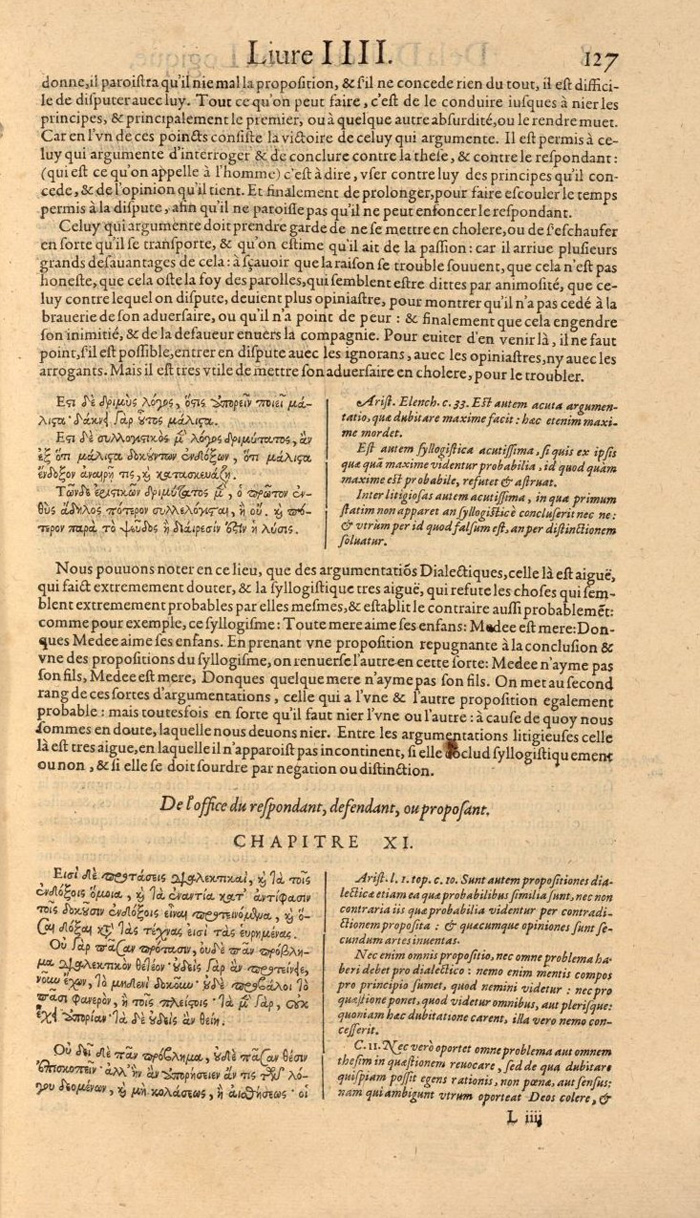 Liure IIII. 127
donne,il paroistra qu'il nie mal la proposition, & s'il ne concede rien du tout, il est diffici-
le de disputer auec luy. Tout ce qu'on peut faire, c'est de le conduire iusques à nier les
principes, & principalement le premier, ou à quelque autre absurdité,ou le rendre muet.
Car en l'vn de ces poincts consiste la victoire de celuy qui argumente. Il est permis à ce-
luy qui argumente d'interroger & de conclure contre la these, & contre le respondant:
(qui est ce qu'on appelle à l'homme) c'est à dire, vser contre luy des principes qu'il con-
cede, & de l'opinion qu'il tient. Et finalement de prolonger,pour faire escouler le temps
permis à la dispute, afin qu'il ne paroisse pas qu'il ne peut enfoncer le respondant.
Celuy qui argumente doit prendre garde de ne se mettre en cholere,ou de s'eschaufer
en sorte qu'il se transporte, & qu'on estime qu'il ait de la passion: car il arriue plusieurs
grands desauantages de cela: à sçauoir que la raison se trouble souuent, que cela n'est pas
honeste, que cela oste la foy des parolles,qui semblent estre dittes par animosité, que ce-
luy contre lequel on dispute, deuient plus opiniastre, pour montrer qu'il n'a pas cedé à la
brauerie de son aduersaire, ou qu'il n'a point de peur : & finalement que cela engendre
son inimitié, & de la defaueur enuers la compagnie. Pour euiter d'en venir là, il ne faut
point,s'il est possible,entrer en dispute auec les ignorans, auec les opiniastres,ny auec les
arrogants. Mais il est tres vtile de mettre son aduersaire en cholere, pour le troubler.
Ἔστι δὲ δριμὺς λόγος, ὅστις ἀπορεῖν ποιεῖ μά-
λιστα· δάκνει γὰρ οὗτος μάλιστα.
Ἔστι δὲ συλλογιστικὸς μὲν λόγος δριμύτατος, ἂν
ἐξ ὅτι μάλιστα δοκούντων ἐνδόξων, ὅτι μάλιστα
ἔνδοξον ἀναιρῇ τις, καὶ κατασκευάζῃ.
Τῶν δὲ ἐριστικῶν δριμύτατος μὲν, ὁ πρῶτον εὐ-
θὺς ἄδηλος πότερον συλλελόγισται, ἢ οὔ. καὶ πό-
τερον παρὰ τὸ ψεῦδος ἢ διαίρεσίν ἐστιν ἡ λύσις.
Arist. Elench. c. 33. Est autem acuta argumen-
tatio, quæ dubitare maxime facit: hæc etenim maxi-
me mordet.
Est autem syllogistica acutissima, si quis ex ipsis
quæ quà maxime videntur probabilia, id quod quàm
maxime est probabile, refutet & astruat.
Inter litigiosas autem acutissima, in qua primum
statim non apparet an syllogisticè concluserit nec ne:
& vtrum per id quod falsum est, an per distinctionem
soluatur.
Nous pouuons noter en ce lieu, que des argumentatiõs Dialectiques,celle là est aiguë,
qui faict extremement douter, & la syllogistique tres aiguë, qui refute les choses qui sem-
blent extremement probables par elles mesmes,& establit le contraire aussi probablemẽt:
comme pour exemple, ce syllogisme : Toute mere aime ses enfans: Medee est mere:Don-
ques Medee aime ses enfans. En prenant vne proposition repugnante à la conclusion &
vne des propositions du syllogisme, on renuerse l'autre en cette sorte: Medee n'ayme pas
son fils, Medee est mere, Donques quelque mere n'ayme pas son fils. On met au second
rang de ces sortes d'argumentations , celle qui a l'vne & l'autre proposition egalement
probable : mais toutesfois en sorte qu'il faut nier l'vne ou l'autre : à cause de quoy nous
sommes en doute, laquelle nous deuons nier. Entre les argumentations litigieuses celle
là est tres aigue, en laquelle il n'apparoist pas incontinent, si elle cõclud syllogistiquement
ou non , & si elle se doit soudre par negation ou distinction.
De l'office du respondant, defendant, ou proposant.
CHAPITRE XI.
Εἰσὶ δὲ προτάσεις διαλεκτικαὶ, καὶ τὰ τοῖς
ἐνδόξοις ὅμοια, καὶ τὰ ἐναντία κατ' ἀντίφασιν
τοῖς δοκοῦσιν ἐνδόξοις εἶναι προτεινόμενα, καὶ ὅ-
σαι δόξαι κατὰ τὰς τέχνας εἰσὶ τὰς εὑρημένας.
Οὐ γὰρ πᾶσαν πρότασιν, οὐδὲ πᾶν πρόβλη-
μα διαλεκτικὸν θετέον· οὐδεὶς γὰρ ἂν προτείνειε,
νοῦν ἔχων, τὸ μηδενὶ δοκοῦν· οὐδὲ προβάλοι τὸ
πᾶσι φανερὸν, ἢ τοῖς πλείστοις· τὰ μὲν γὰρ, οὐκ
ἔχει ἀπορίαν· τὰ δὲ οὐδεὶς ἂν θείη.
Οὐ δεῖ δὲ πᾶν πρόβλημα, οὐδὲ πᾶσαν θέσιν
ἐπισκοπεῖν· ἀλλ' ἣν ἂν ἀπορήσειεν ἄν τις τῶν λό-
γου δεομένων, καὶ μὴ κολάσεως, ἢ αἰσθήσεως· οἱ
Arist. l. 1. top. c. 10. Sunt autem propositiones dia-
lecticæ etiam ea quæ probabilibus similia sunt, nec non
contraria iis quæ probabilia videntur per contradi-
ctionem proposita : & quæcumque opiniones sunt se-
cundum artes inuentas.
Nec enim omnis propositio, nec omne problema ha-
beri debet pro dialectico : nemo enim mentis compos
pro principio sumet, quod nemini videtur : nec pro
quæstione ponet, quod videtur omnibus, aut plerisque:
quoniam hæc dubitatione carent, illa vero nemo con-
cesserit.
C. 11. Nec verò oportet omne problema aut omnem
thesim in quæstionem reuocare, sed de qua dubitare
quispiam possit egens rationis, non pœnæ, aut sensus:
nam qui ambigunt vtrum oporteat Deos colere, &
L iiij